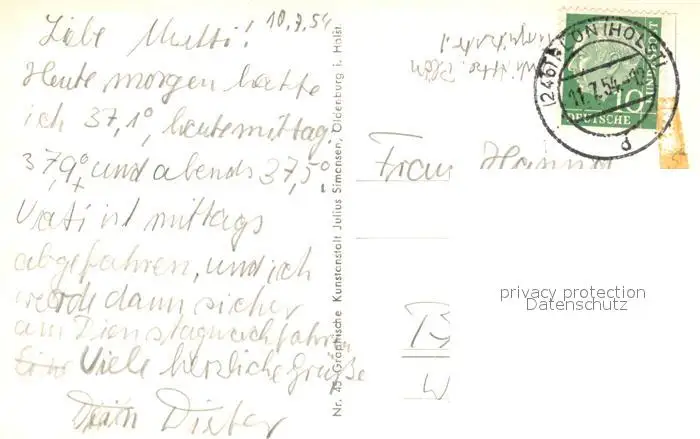 10.7.54
Liebe Mutti!
Heute morgen hatte
ich 37,1°, heute mittag
37,9° und abends 37,5°
Vati ist mittags
abgefahren, und ich
werde dann sicher
am Dienstag nachfahren
Viele herzliche Grüße
Dein Dieter
Nr. 45 Graphische Kunstanstalt Julius Simonsen, Oldenburg i. Holst.
(24b) PLÖN (HOLST)
11.7.54
d
10
DEUTSCHE BUNDESPOST
Frau Hanna
B
W
privacy protection
Datenschutz